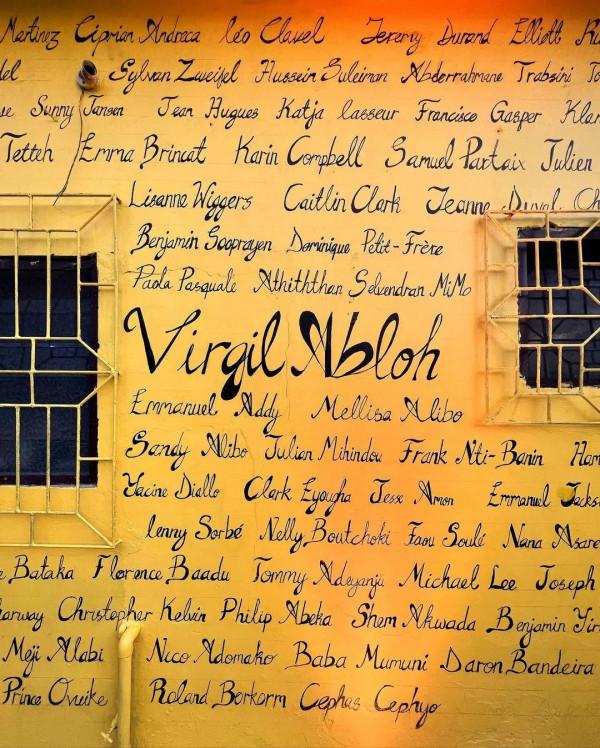 Martinez Ciprian Andreca léo Clauel Jeremy Durand Elliott
Sylvan Zweifel Hussein Suleiman Abderrahmane Trabsini
Sunny Jansen Jean Hugues Katja lasseur Francisco Gasper
Tetteh Emma Brincat Karin Campbell Samuel Partaix Julien
Lisanne Wiggers Caitlin Clark Jeanne Duval
Benjamin Sooprayen Dominique Petit-Frère
Paola Pasquale Athiththan Selvendran MiMo
Virgil Abloh
Emmanuel Addy Mellisa Alibo
Sandy Alibo Julian Mihindou Frank Nti-Banin
Yacine Diallo Clark Eyougha Jesse Amon Emmanuel
lenny Sorbé Nelly Boutchoki Faou Soulé Nana Asare
Bataka Florence Baadu Tommy Adeyanju Michael Lee Joseph
Christopher Kelvin Philip Abeka Shem Akwada Benjamin
Meji Alabi Nico Adomako Baba Mumuni Daron Bandeira
Prince Ovuike Roland Borkorm Cephas Cephyo